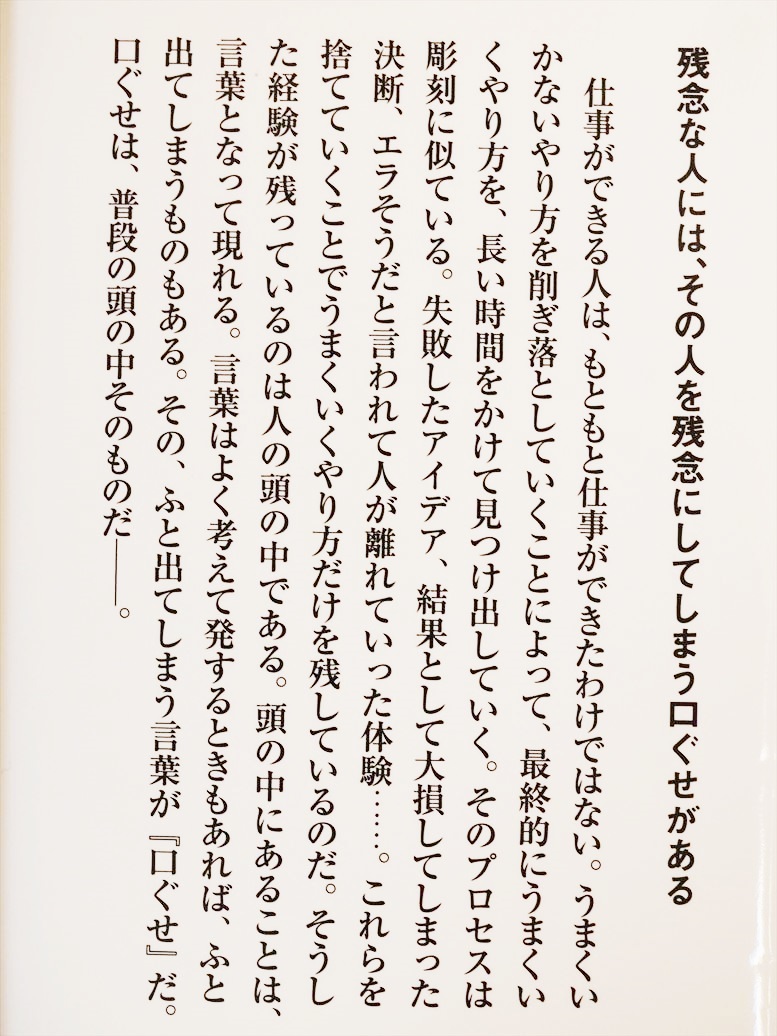 残念な人には、その人を残念にしてしまう口ぐせがある
仕事ができる人は、もともと仕事ができたわけではない。うまくい
かないやり方を削ぎ落としていくことによって、最終的にうまくい
くやり方を、長い時間をかけて見つけ出していく。そのプロセスは
彫刻に似ている。失敗したアイデア、結果として大損してしまった
決断、エラそうだと言われて人が離れていった体験……。これらを
捨てていくことでうまくいくやり方だけを残しているのだ。そうし
た経験が残っているのは人の頭の中である。頭の中にあることは、
言葉となって現れる。言葉はよく考えて発するときもあれば、ふと
出てしまうものもある。その、ふと出てしまう言葉が『口ぐせ』だ。
口ぐせは、普段の頭の中そのものだ――。